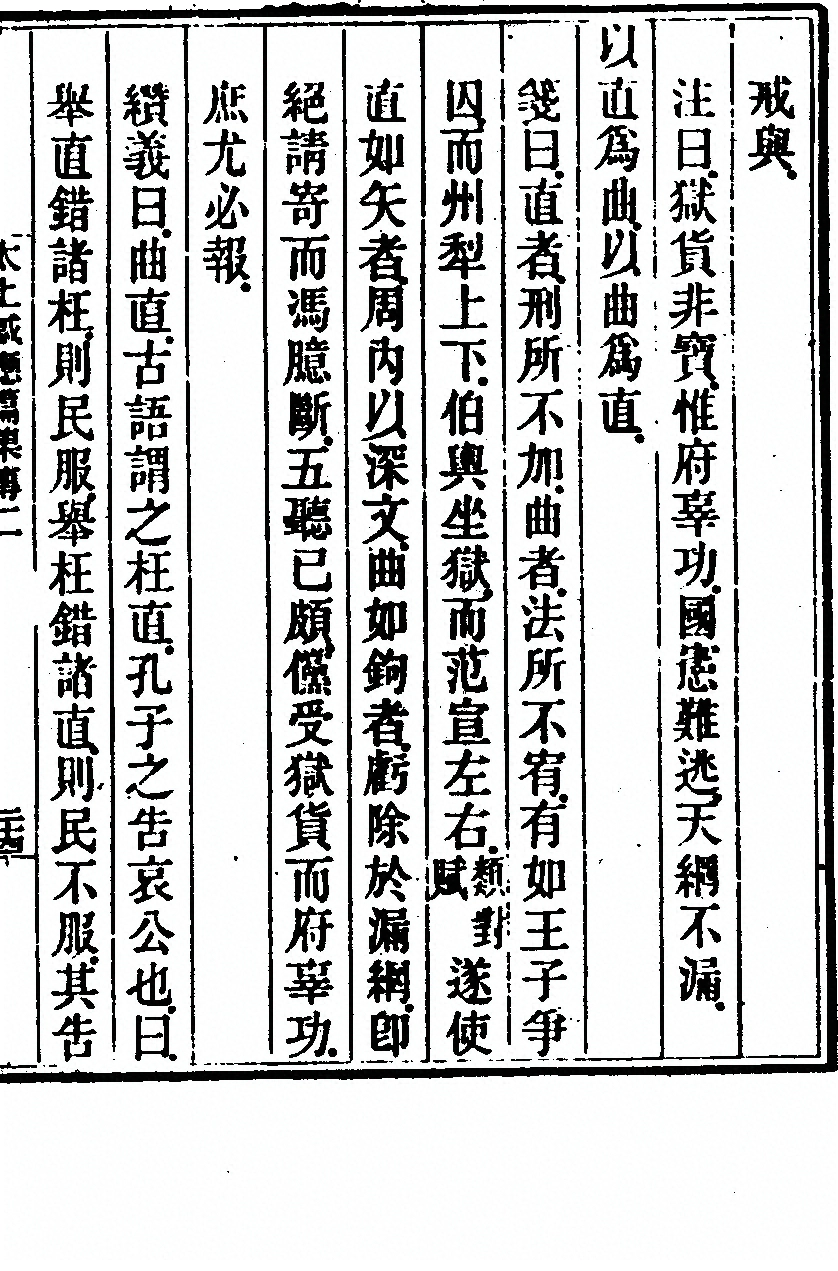 戒與.
注曰.獄貨非寶.惟府辜功.國憲難逃.天網不漏.
以直爲曲.以曲爲直.
箋曰.直者.刑所不加.曲者.法所不宥.有如王子爭
囚.而州犁上下.伯輿坐獄.而范宣左右.類對賦遂使
直如矢者.周內以深文.曲如鉤者.虧除於漏網.卽
絕請寄而馮臆斷.五聽已頗.儻受獄貨而府辜功.
庶尤必報.
纘義曰.曲直.古語謂之枉直.孔子之告哀公也.曰.
舉直錯諸枉.則民服.舉枉錯諸直.則民不服.其告
太上感應篇集傳二
二十四